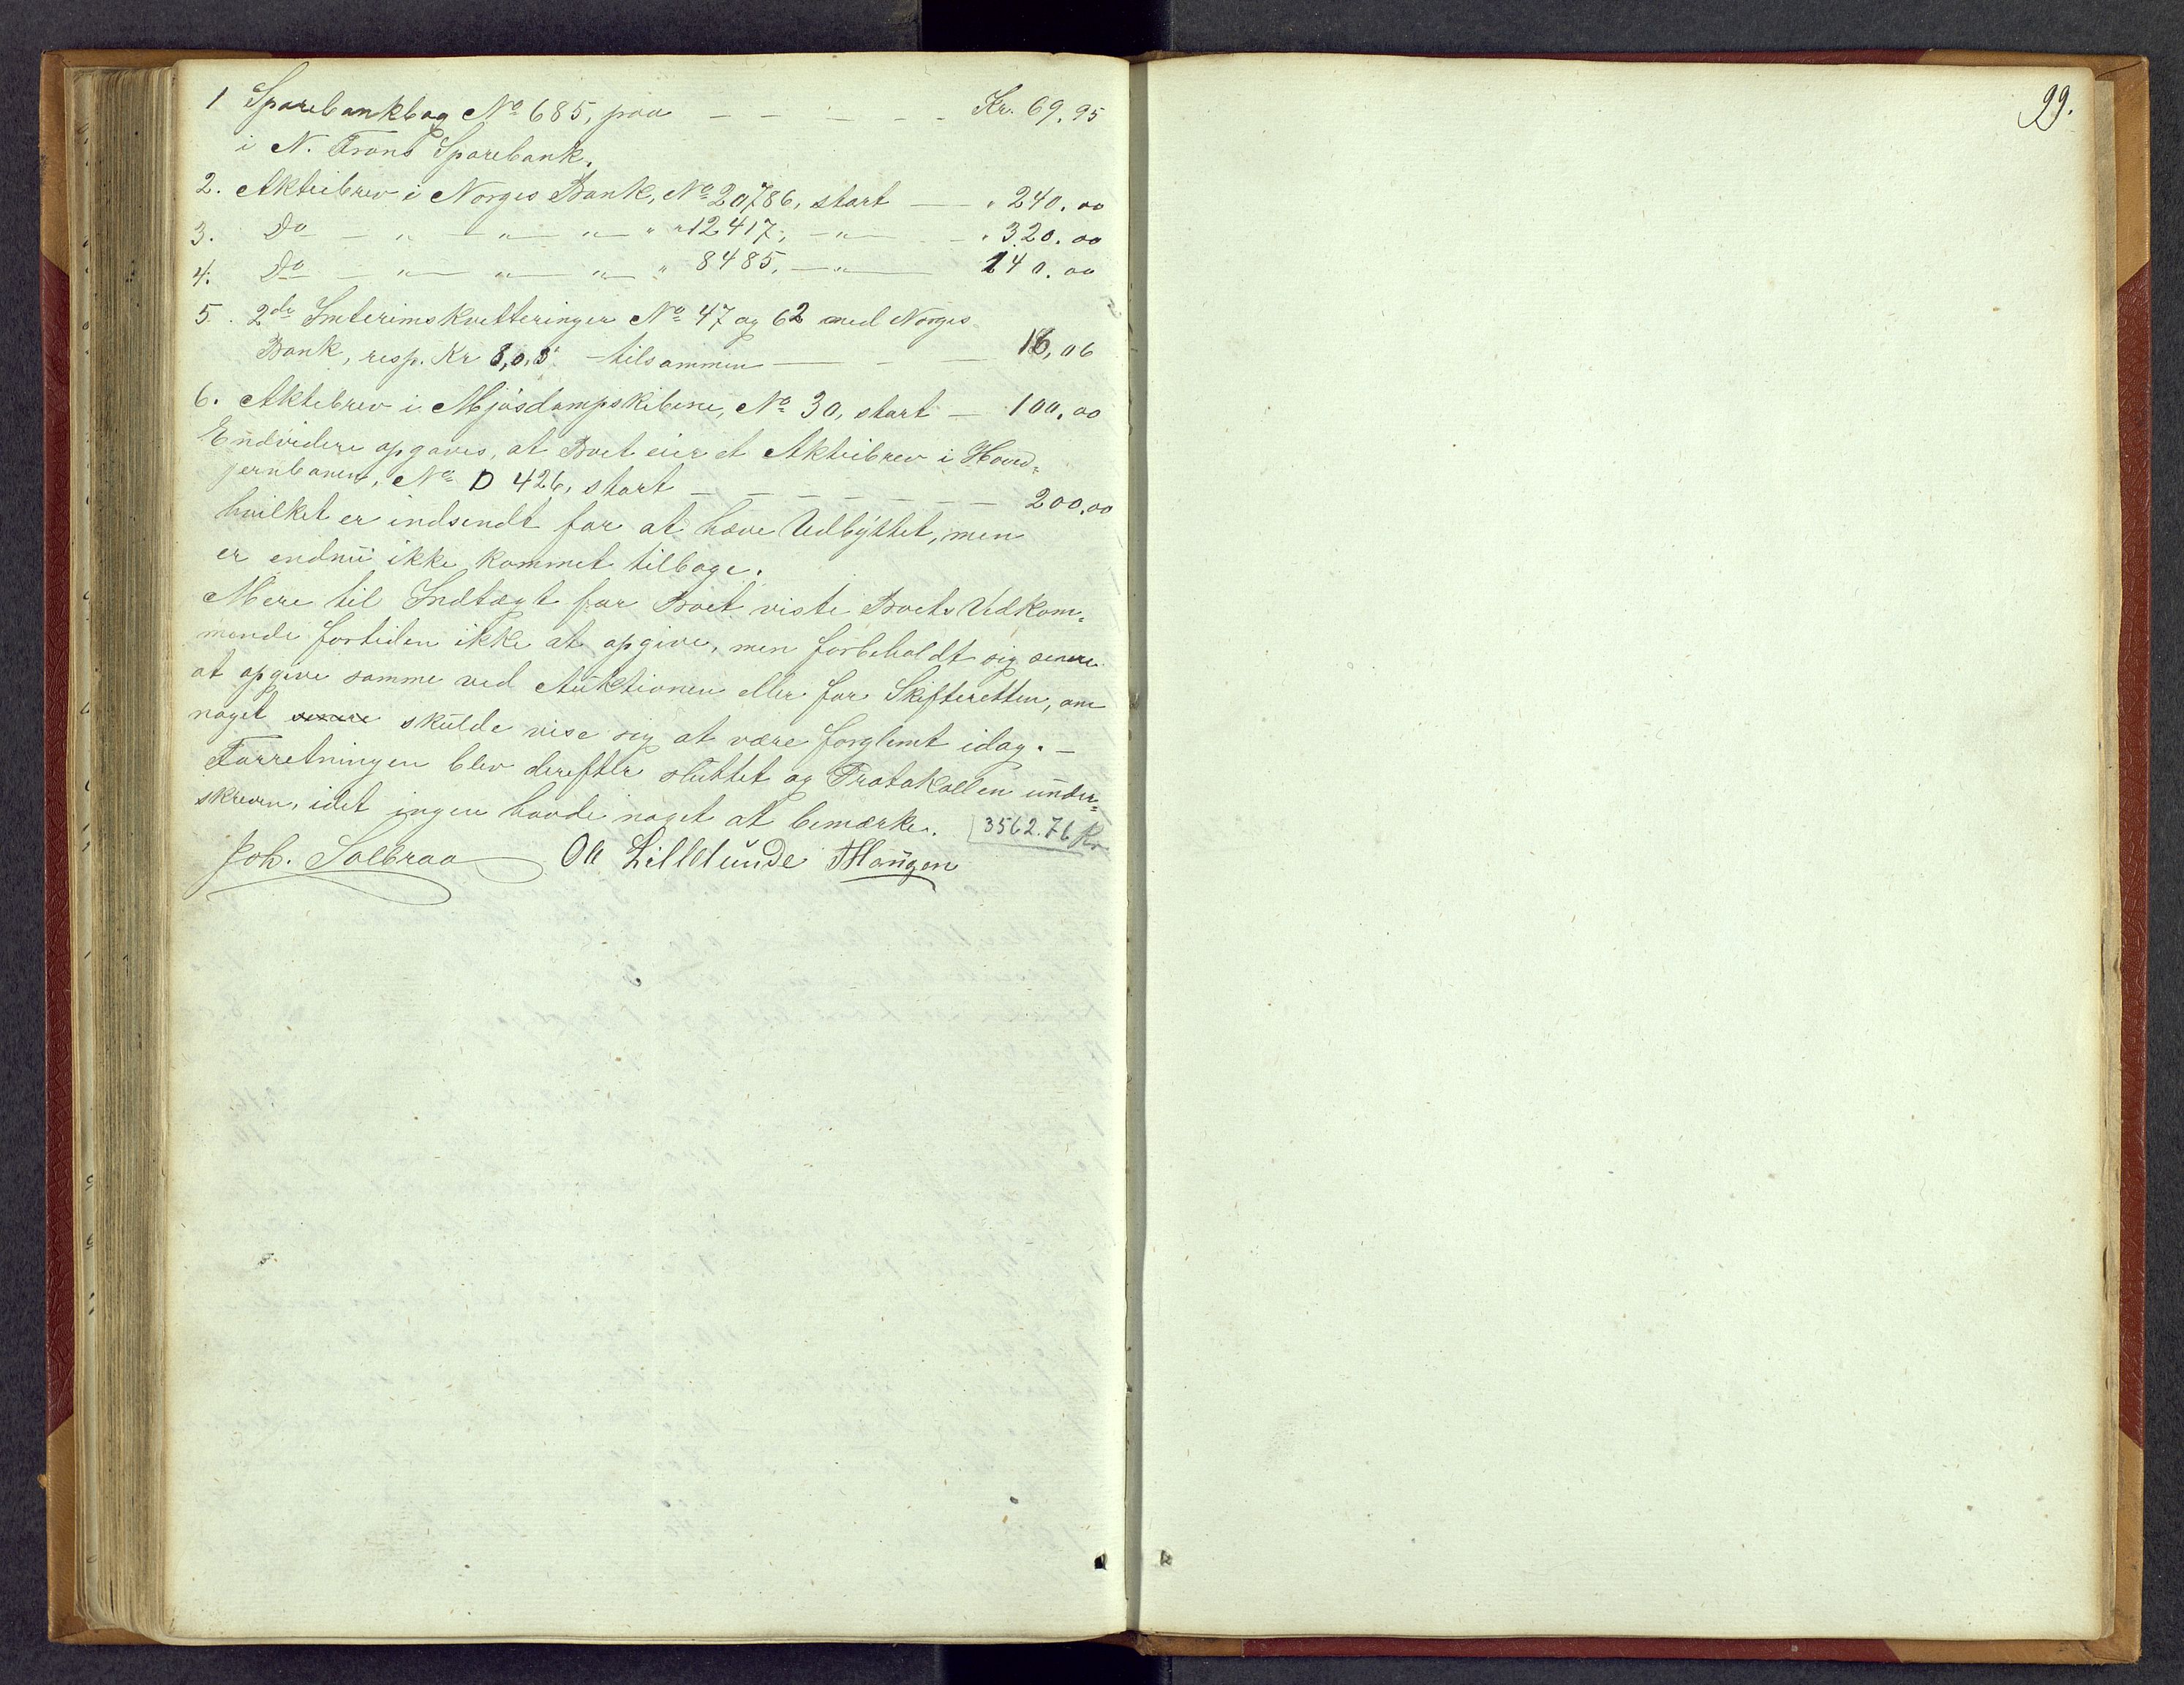 1 Sparebankbog No 685, paa — — — — — Kr. 69.95
i N. Frons Sparebank.
2. Aktiebrev i Norges Bank, No 20786, stort — „ 240.00
3. Do — „ — „ — „ — „ „ 12417, — „ — „ 320.00
4. Do — „ — „ — „ — „ 8485, — „ — 240.00
5. 2de Interimskvitteringer No 47 og 62 med Norges
Bank, resp. Kr 8,0,8 tilsammen — — 16,06
6. Aktiebrev i Mjøsdampskibene, No 30, stort — 100,00
Endvidere opgaves, at Boet eier et Aktiebrev i Hoved=
jernbanen, No D 426, stort — — — — — — — 200,00
hvilket er indsendt for at hæve Udbyttet, men
er endnu ikke kommet tilbage.
Mere til Indtægt for Boet viste Boets Vedkom=
mende fortiden ikke at opgive, men forbeholdt sig senere
at opgive samme ved Auktionen eller for Skifteretten, om
noget senere skulde vise sig at være forglemt idag. —
Forretningen blev derefter sluttet og Protokollen under=
skreven, idet ingen havde noget at bemærke. 3562.76 Kr
Joh. Solbraa Ole Lillelunde THaugen
99.